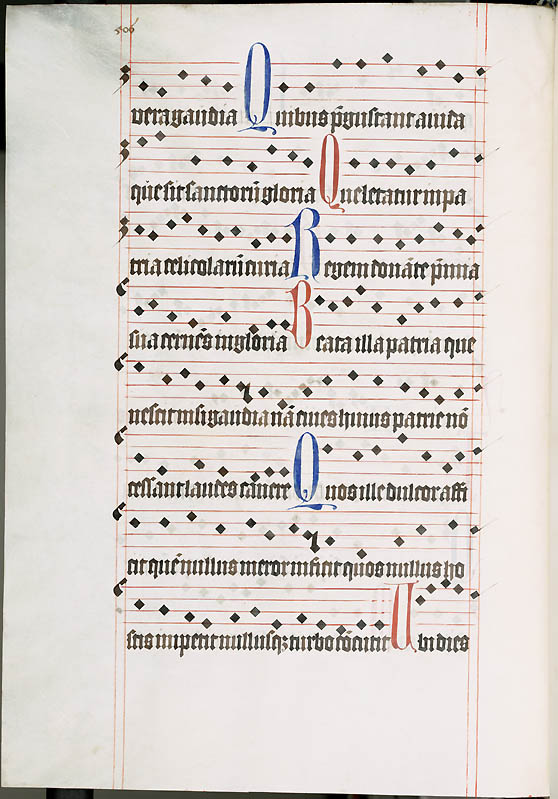 506
vera gaudia Quibus p̄gustant auida
que sit sanctorū gloria Que letatur in pa
tria celicolarū curia Regem donāte p̄mia
sua cernēs in gloria Beata illa patria que
nescit nisi gaudia nā ciues huius patrie nō
cessant laudes canere Quos ille dulcor affi
cit quē nullus meror inficit quos nullus ho
stis impetit nullusqꝫ turbo cōcutit Ubi dies